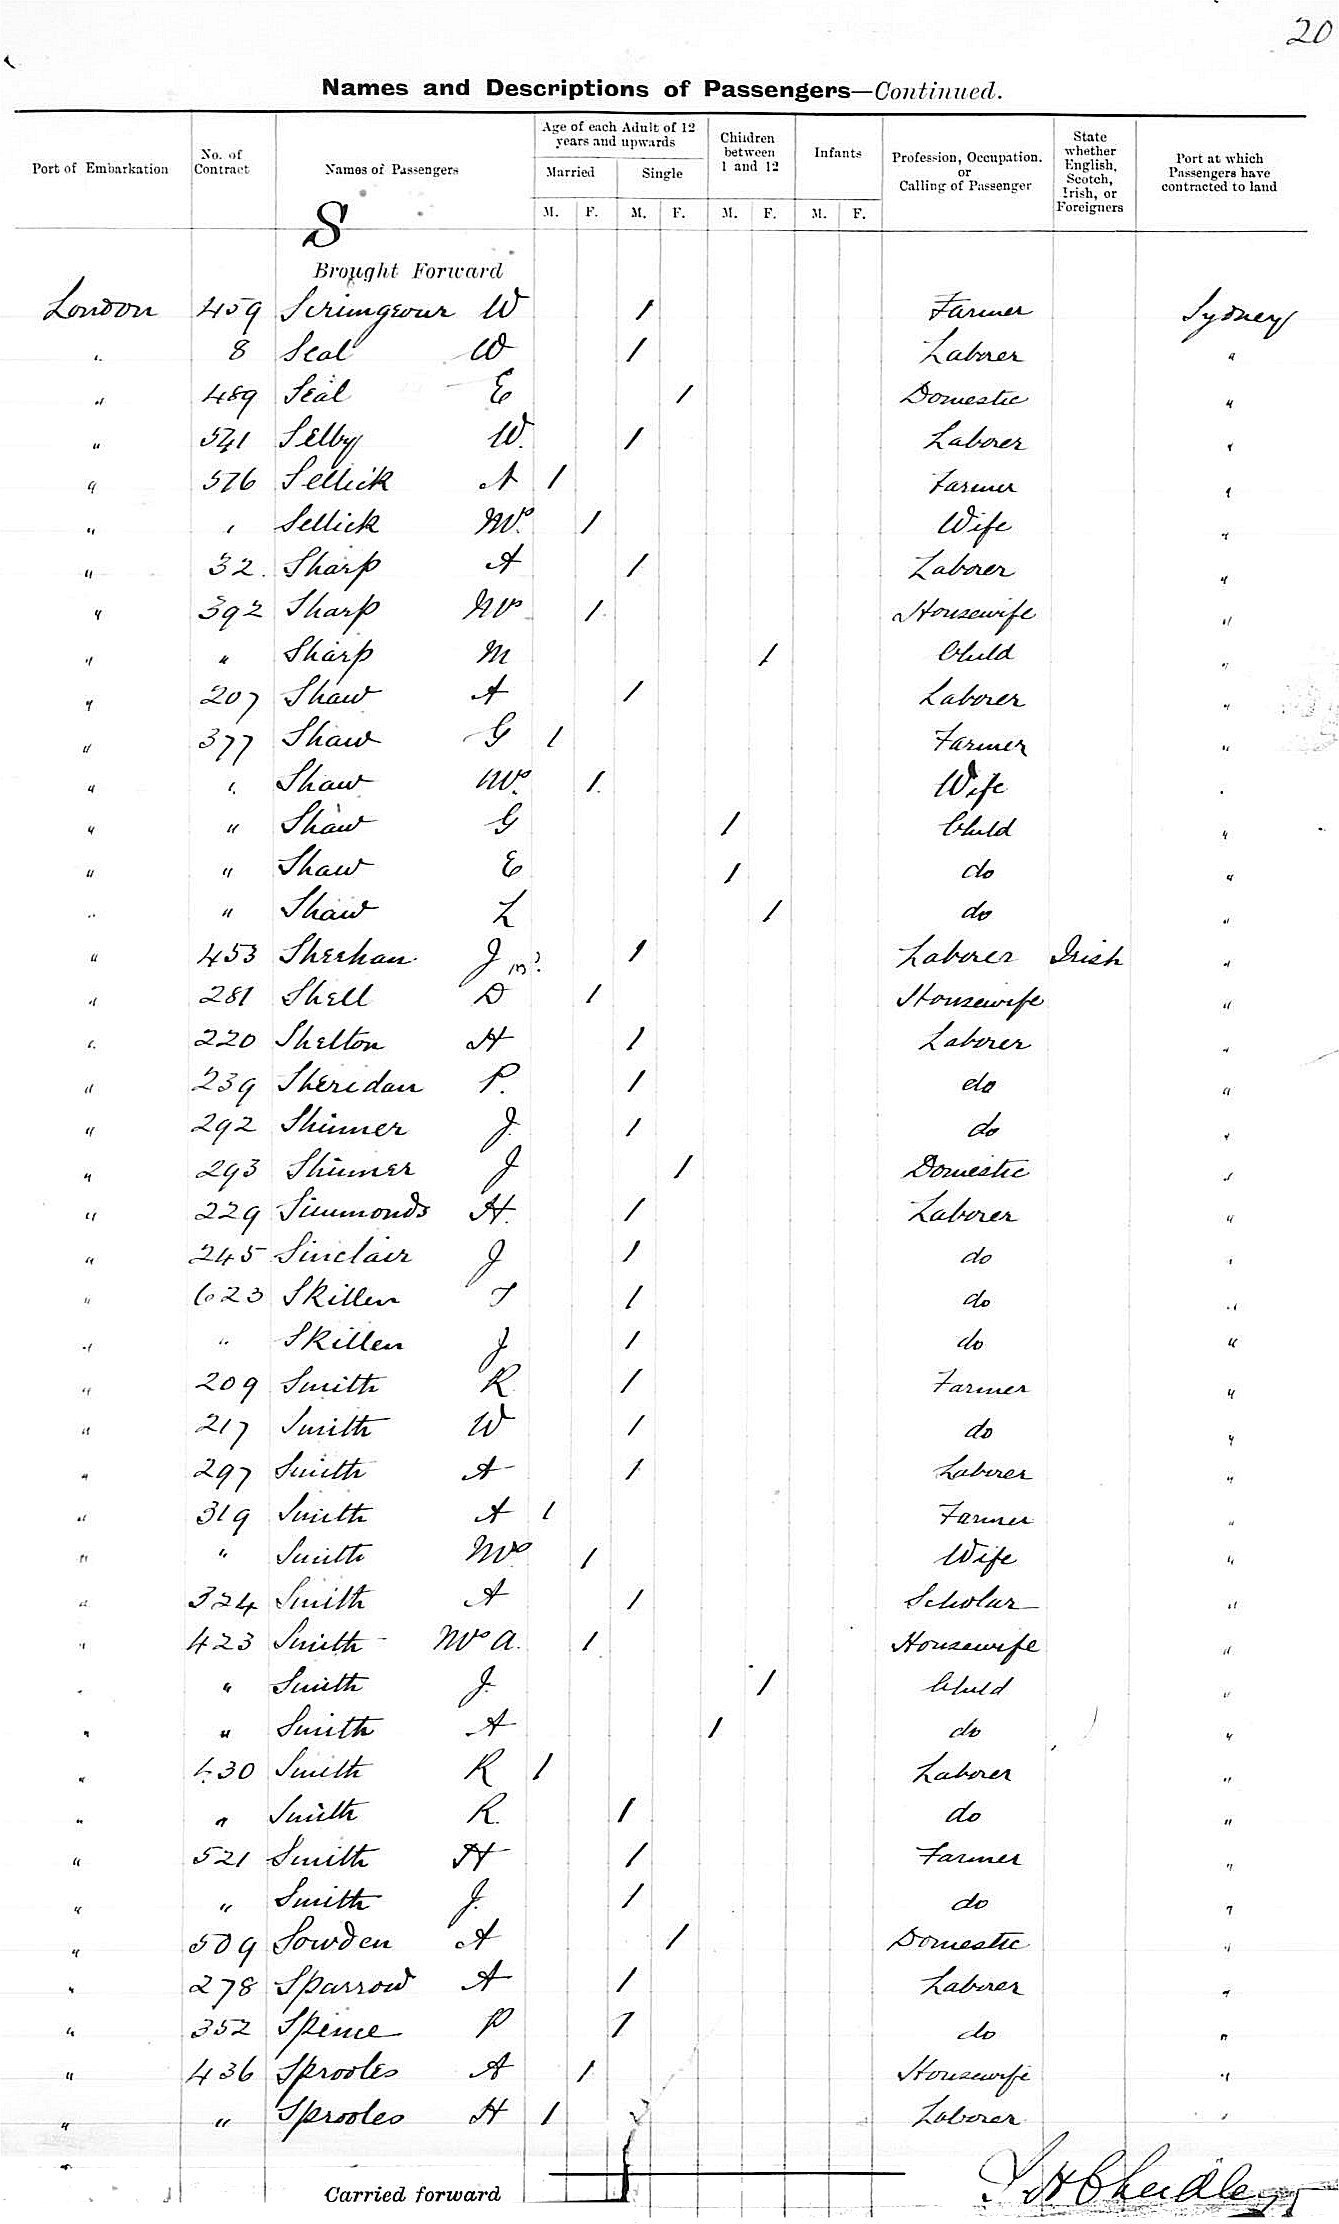 20
Names and Descriptions of Passengers—Continued.
Port of Embarkation No. of Contract Names of Passengers Age of each Adult of 12 years and upwards Children between 1 and 12 Infants Profession, Occupation. or Calling of Passenger State whether English, Scotch, Irish, or Foreigners Port at which Passengers have contracted to land
Married Single
M. F. M. F. M. F. M. F.
S
Brought Forward
London 459 Scrimgeour W 1 Farmer Sydney
" 8 Seal W 1 Laborer "
" 489 Seal E 1 Domestic "
" 541 Selby W. 1 Laborer "
" 576 Sellick A 1 Farmer "
" " Sellick Mrs. 1 Wife "
" 32. Sharp A 1 Laborer "
" 392 Sharp Mrs 1 Housewife "
" " Sharp M 1 Child "
" 207 Shaw A 1 Laborer "
" 377 Shaw G 1 Farmer "
" " Shaw Mrs. 1 Wife "
" " Shaw G 1 Child "
" " Shaw E 1 do "
" " Shaw L 1 do "
" 453 Sheehan J 1 Laborer Irish "
" 281 Shell D 1 Housewife "
" 220 Shelton H 1 Laborer "
" 239 Sheridan P. 1 do "
" 292 Shinner J 1 do "
" 293 Shinner J 1 Domestic "
" 229 Simmonds H. 1 Laborer "
" 245 Sinclair J 1 do "
" 623 Skillen T 1 do "
" " Skillen J 1 do "
" 209 Smith R 1 Farmer "
" 217 Smith W 1 do "
" 297 Smith A 1 Laborer "
" 319 Smith A 1 Farmer "
" " Smith Mrs 1 Wife "
" 324 Smith A 1 Scholar "
" 423 Smith Mrs A. 1 Housewife "
" " Smith J. 1 Child "
" " Smith A 1 do "
" 430 Smith R 1 Laborer "
" " Smith R. 1 do "
" 521 Smith H 1 Farmer "
" " Smith J. 1 do "
" 509 Sowden A 1 Domestic "
" 278 Sparrow A 1 Laborer "
" 352 Spence P 1 do "
" 436 Sprooles A 1 Housewife "
" " Sprooles H 1 Laborer "
Carried forward